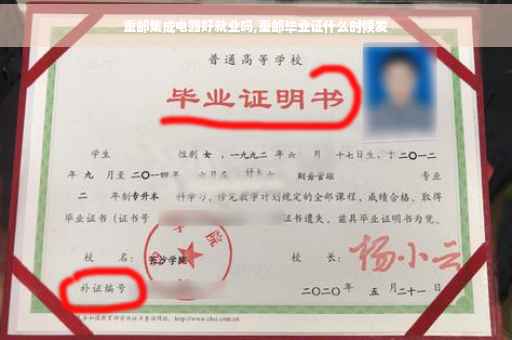 重邮集成电路好就业吗,重邮毕业证什么时候发
普通高等学校
毕业证明书
学生 性别 女 ，一九九二 年 六 月 十七日生，于 二〇一二
年 九 月至 二〇一四 年 六月在 财务管理 专业
二 年制 专升本 科学习，修完教学计划规定的全部课程，成绩合格，取得
毕业证书（证书号 证书遗失，兹具毕业证明书为凭。
校 名： 长沙学院 校 长： 杨小云
补证编号 二〇二〇 年 五 月 二十一 日
http://www.chsi.com.cn